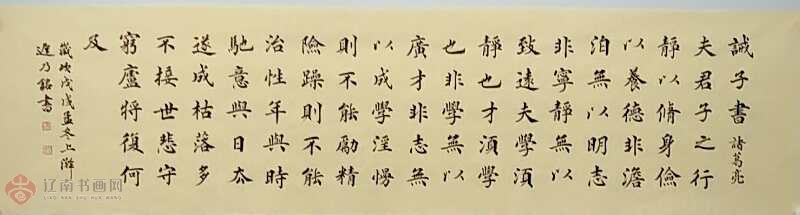 誡子書 諸葛亮
夫君子之行
靜以脩身儉
以養德非澹
泊無以明志
非寧靜無以
致遠夫學須
靜也才須學
也非學無以
廣才非志無
以成學淫慢
則不能勵精
險躁則不能
治性年與時
馳意與日去
遂成枯落多
不接世悲守
窮廬將復何
及
歲次戊戌孟冬上澣
遲乃銘書
辽南书画网
LIAO NAN SHU HUA WANG